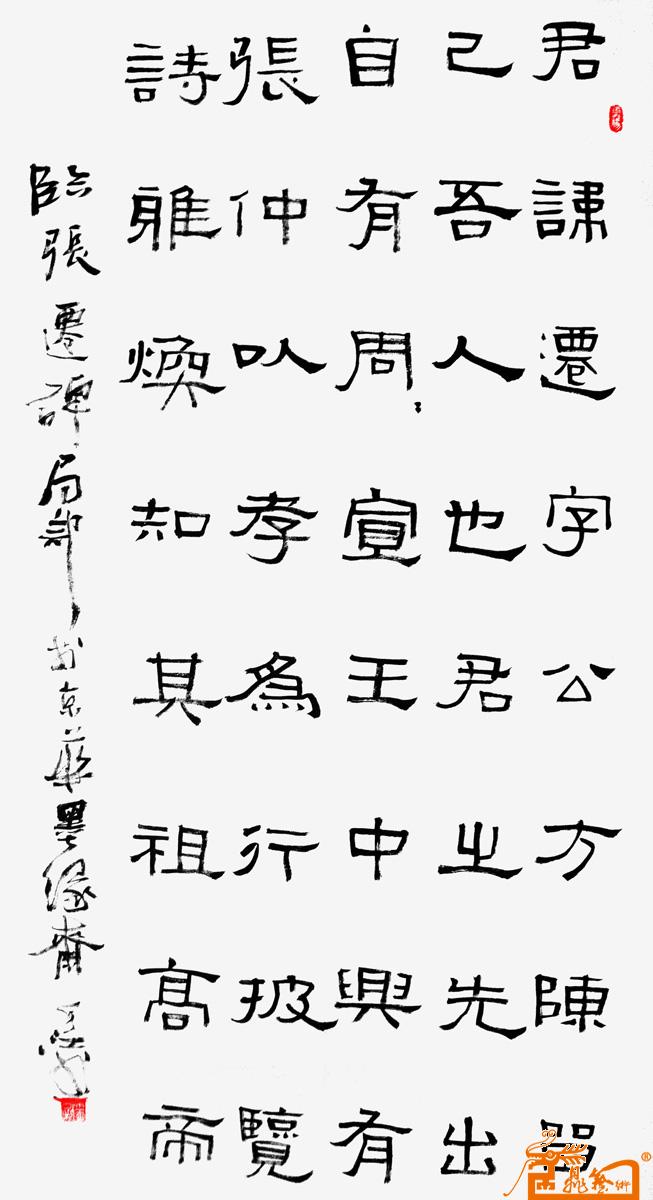 君諱遷字公方陳留
己吾人也君之先出
自有周〻宣王中興有
張仲以孝為行披覽
詩雅煥知其祖高帝
臨張遷碑局部於京華墨緣齋